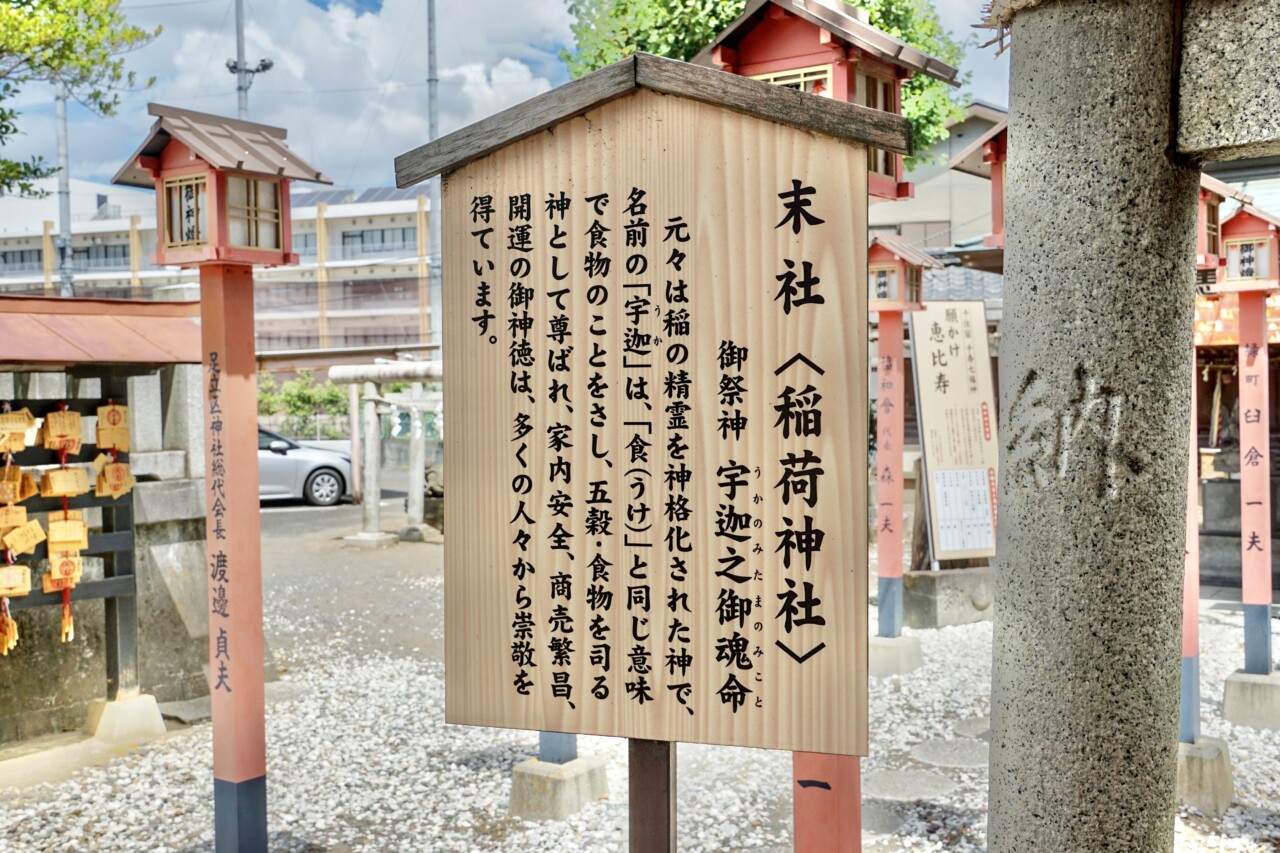 末社〈稲荷神社〉
御祭神 宇迦之御魂命
うかのみたまのみこと
元々は稲の精霊を神格化された神で、
名前の「宇迦」は、「食(うけ)」と同じ意味
うか
で食物のことをさし、五穀・食物を司る
神として尊ばれ、家内安全、商売繁昌、
開運の御神徳は、多くの人々から崇敬を
得ています。
足立区神社総代会長 渡邉貞夫
願かけ
恵比寿
森一夫
臼倉一夫
納
一